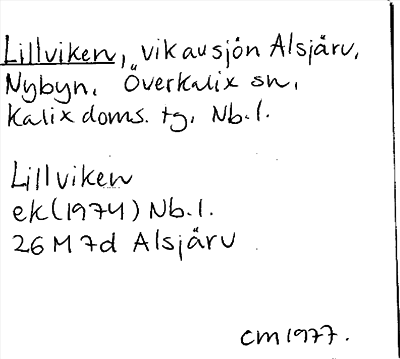 Lillviken, vik av sjön Alsjärv,
Nybyn, Överkalix sn,
Kalix doms. tg, Nb.l.
Lillviken
ek (1974) Nb.l.
26 M 7d Alsjärv
CM 1977.